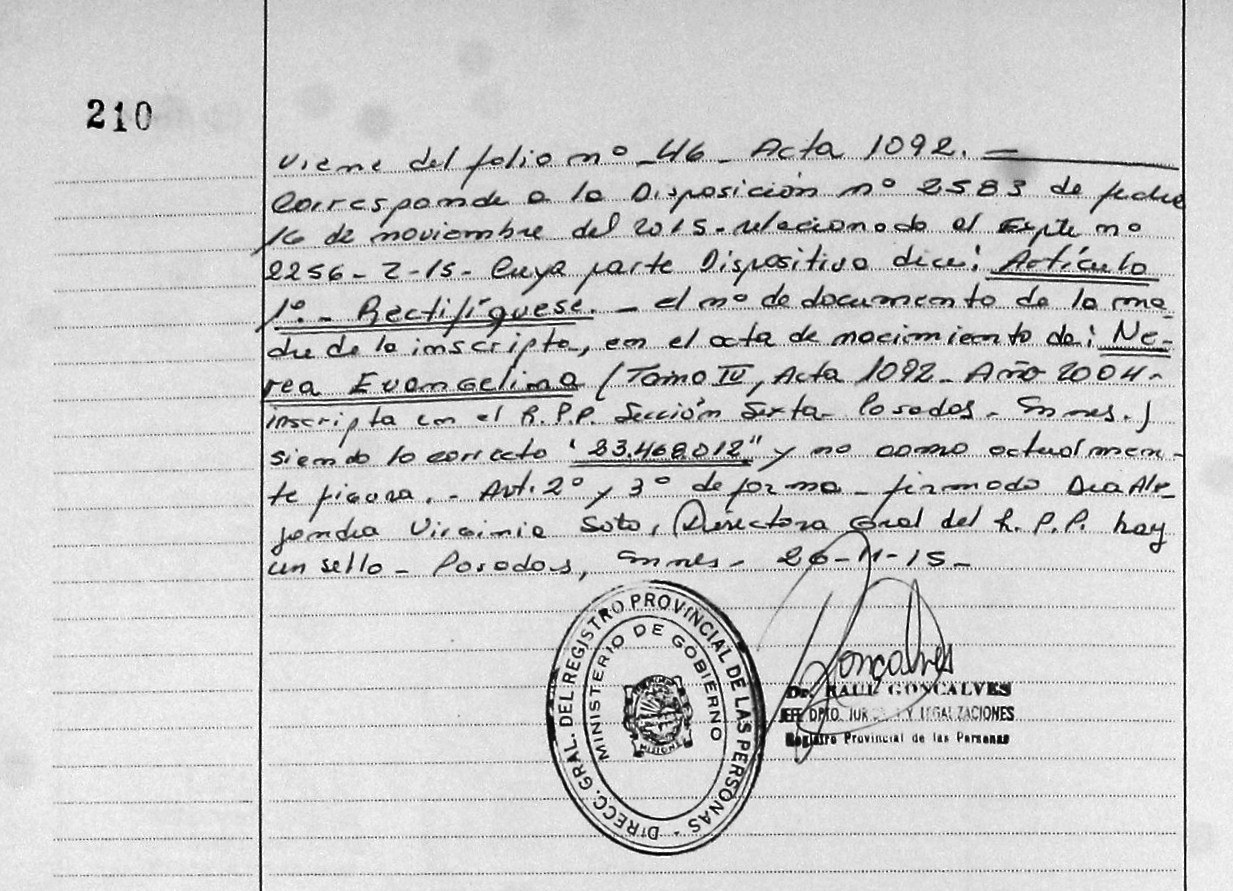 210
Viene del folio nº 46 - Acta 1092. —
Corresponde a la Disposición nº 2583 de fecha
16 de noviembre del 2015 - relacionado al Expte nº
2256 - Z - 15 - Cuya parte Dispositiva dice: Artículo
1º. - Rectifíquese. - el nº de documento de la ma-
dre de la inscripta, en el acta de nacimiento de: Ne-
rea Evangelina (Tomo IV, Acta 1092 - Año 2004 -
inscripta en el R.P.P. Sección Sexta - Posadas - Mnes.)
siendo lo correcto "33.468.012" y no como actualmen-
te figura. - Art. 2º y 3º de forma - firmado Dra Ale-
jandra Virginia Soto, Directora Gral del R.P.P. hay
un sello - Posadas, Mnes - 26-11-15 -
DIRECC. GRAL. DEL REGISTRO PROVINCIAL DE LAS PERSONAS -
MINISTERIO DE GOBIERNO
MISIONES
Gonçalves
Dr. RAUL GONCALVES
JEFE DPTO. JUR Y LEGALIZACIONES
Registro Provincial de las Personas